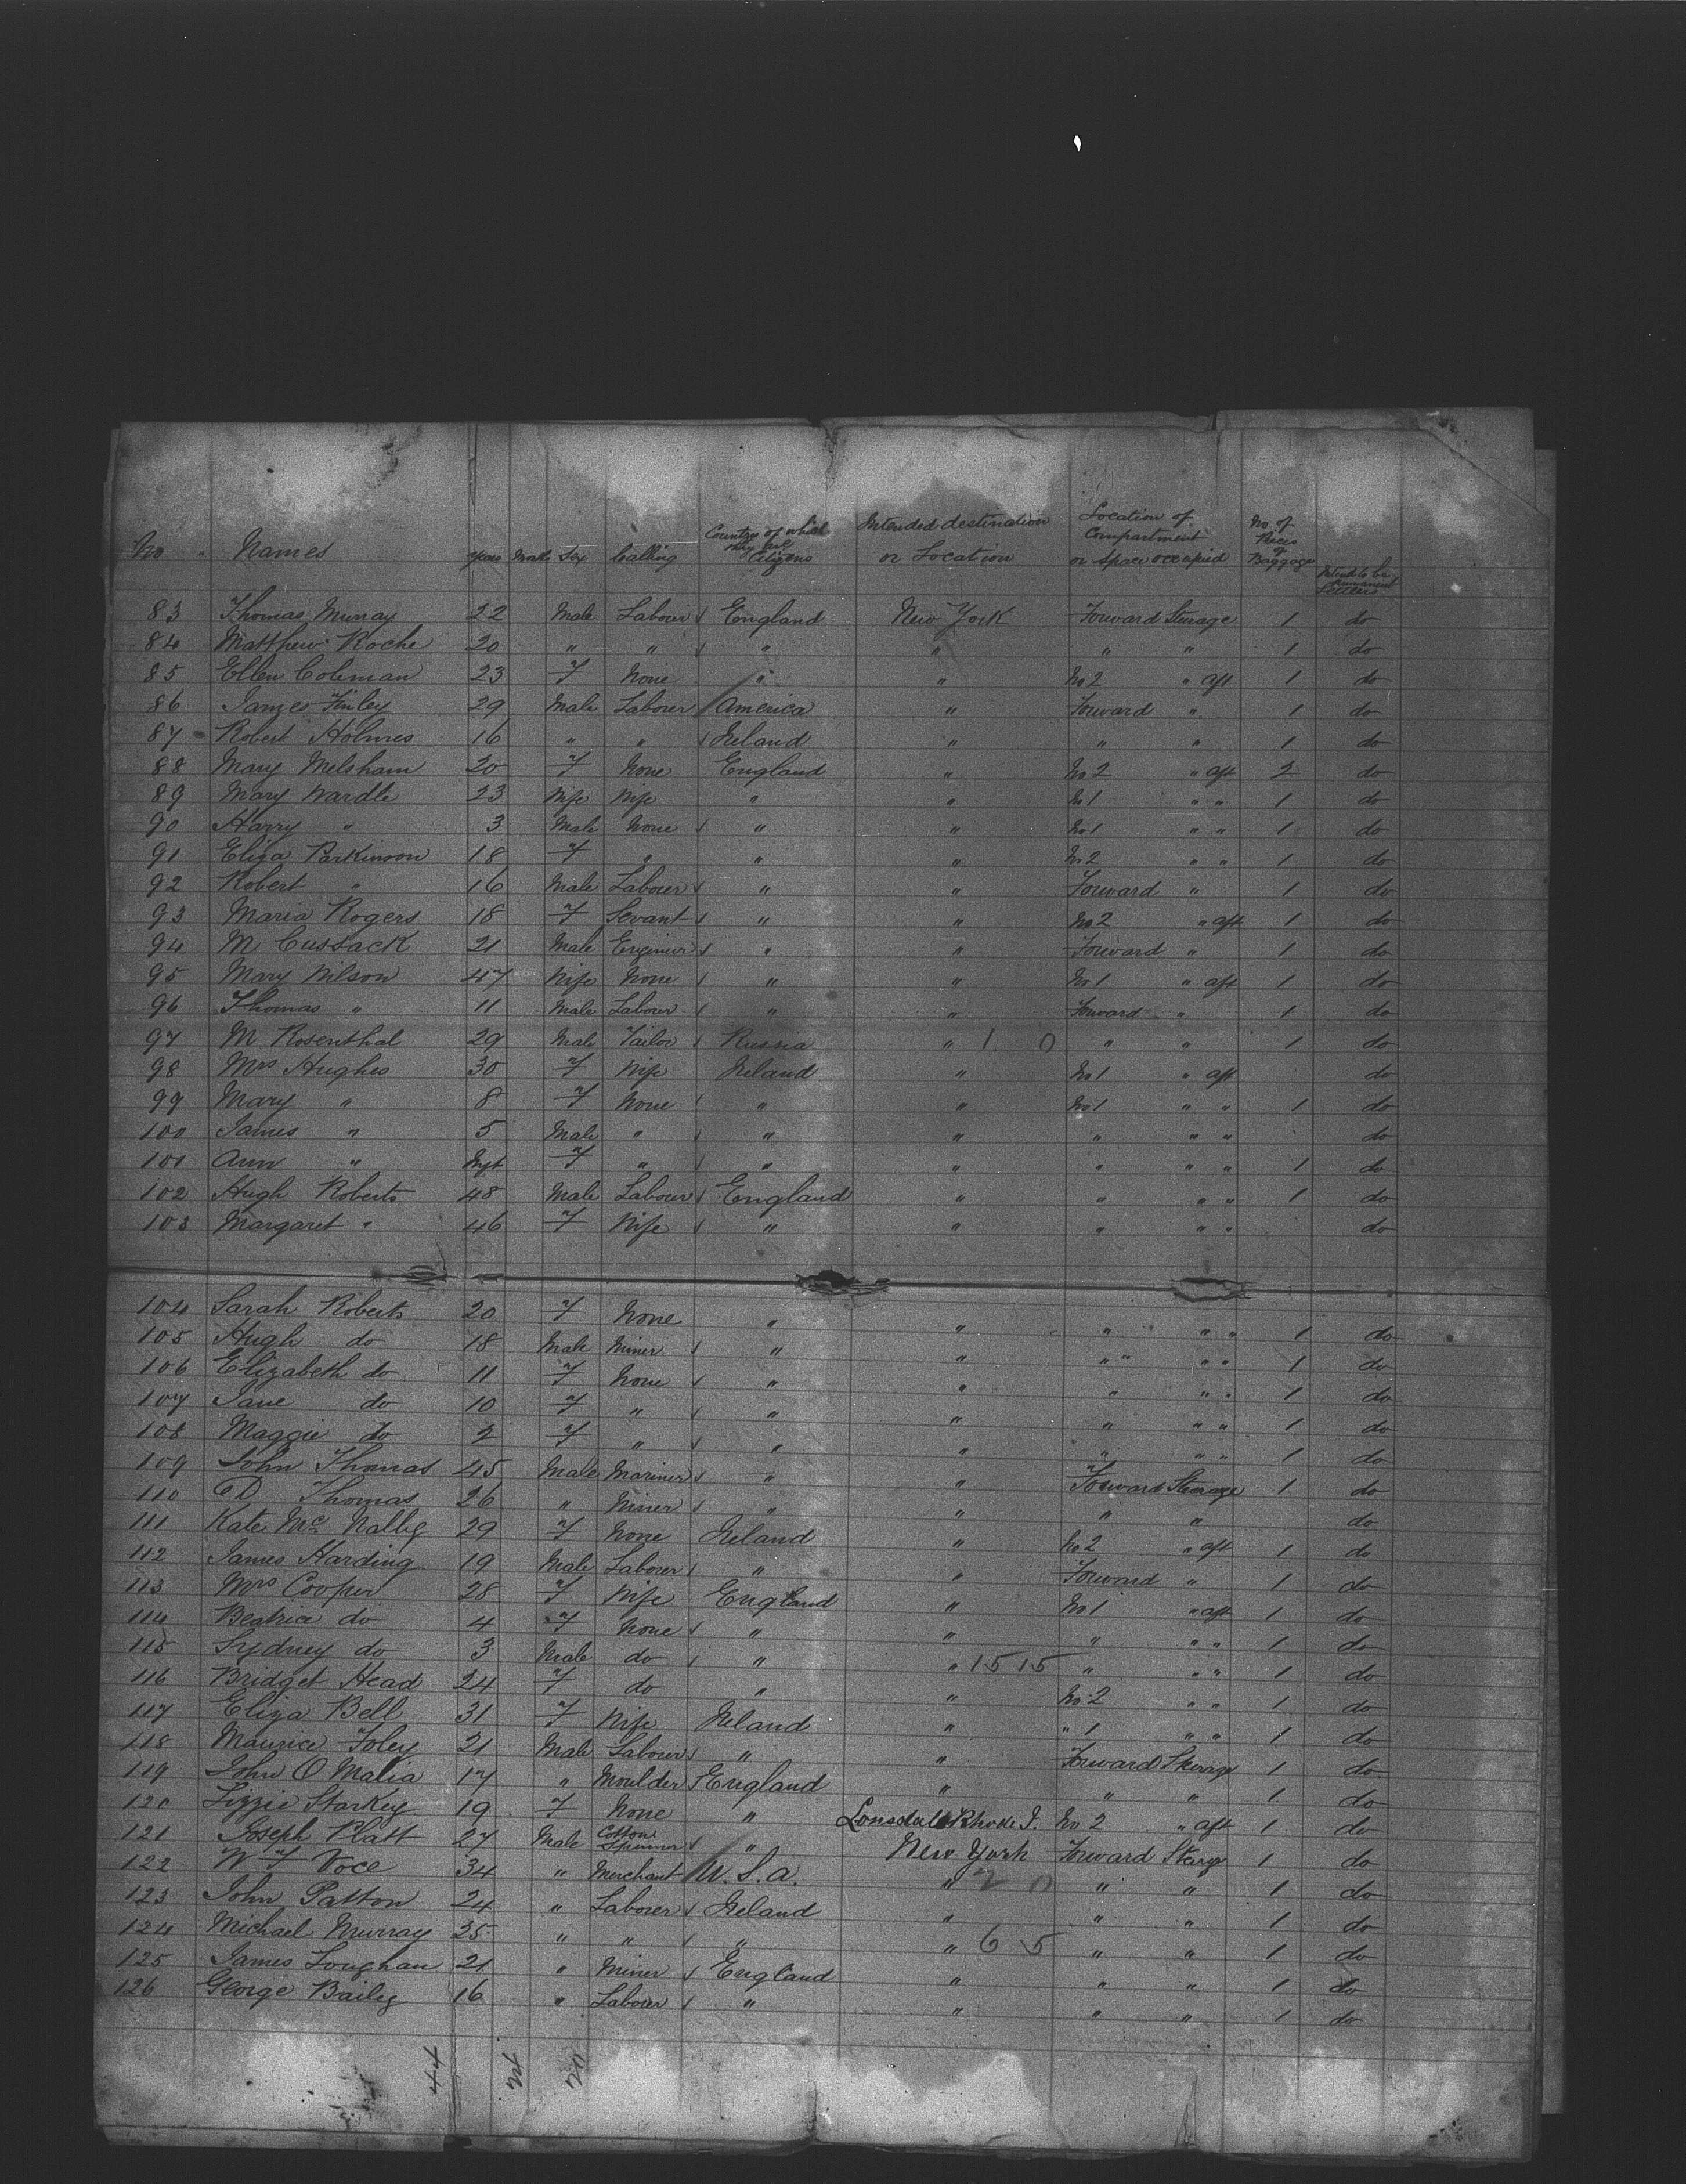 No. Names Years Months Sex Calling Country of which they are Citizens Intended destination or Location Location of Compartment or Space occupied No. of Pieces of Baggage Intend to be permanent Settlers
83 Thomas Murray 22 Male Labour England New York Forward Sterage 1 do
84 Matthew Roche 20 " " " " " " 1 do
85 Ellen Coleman 23 F None " " No 2 " aft 1 do
86 James Finley 29 Male Labourer America " Forward " 1 do
87 Robert Holmes 16 " " Ireland " " " 1 do
88 Mary Melsham 20 F None England " No 2 " aft 2 do
89 Mary Wardle 23 Wife Wife " " No 1 " " 1 do
90 Harry " 3 Male None " " No 1 " " 1 do
91 Eliza Parkinson 18 F " " " No 2 " " 1 do
92 Robert " 16 Male Labourer " " Forward " 1 do
93 Maria Rogers 18 F Servant " " No 2 " aft 1 do
94 M Cussack 21 Male Engineer " " Forward " 1 do
95 Mary Wilson 47 Wife None " " No 1 " aft 1 do
96 Thomas " 11 Male Labour " " Forward " 1 do
97 M Rosenthal 29 Male Tailor Russia " 1 0 " " 1 do
98 Mrs Hughes 30 F Wife Ireland " No 1 " aft do
99 Mary " 8 F None " " No 1 " " 1 do
100 James " 5 Male " " " " " " do
101 Ann " Inft F " " " " " " 1 do
102 Hugh Roberts 48 Male Labour England " " " " 1 do
103 Margaret " 46 F Wife " " " " " do
104 Sarah Roberts 20 F None " " " " " 1 do
105 Hugh do 18 Male Miner " " " " " " 1 do
106 Elizabeth do 11 F None " " " " " 1 do
107 Jane do 10 F " " " " " " 1 do
108 Maggie do 2 F " " " " " " 1 do
109 John Thomas 45 Male Mariner " " Forward Sterage 1 do
110 D Thomas 26 " Miner " " " " do
111 Kate Mc Nally 29 F None Ireland " No 2 " aft 1 do
112 James Harding 19 Male Labourer " " Forward " 1 do
113 Mrs Cooper 28 F Wife England " No 1 " aft 1 do
114 Beatrice do 4 F None " " " " " 1 do
115 Sydney do 3 Male do " " 15 15 " " " 1 do
116 Bridget Head 24 F do " " No 2 " " 1 do
117 Eliza Bell 31 F Wife Ireland " " 1 " " 1 do
118 Maurice Foley 21 Male Labour " " Forward Sterage 1 do
119 John O Malia 17 " Moulder England " " " 1 do
120 Lizzie Starkey 19 F None " Lonsdale Rhode I. No 2 " aft 1 do
121 Joseph Platt 27 Male Cotton Spinner " New York Forward Sterge 1 do
122 W F Voce 34 " Merchant U. S. a. " 2 0 " " 1 do
123 John Patton 24 " Labourer Ireland " " " 1 do
124 Michael Murray 35 " " " " 6 5 " " 1 do
125 James Loughan 21 " Miner England " " " 1 do
126 George Baily 16 " Labourer " " " " 1 do
44
24
20